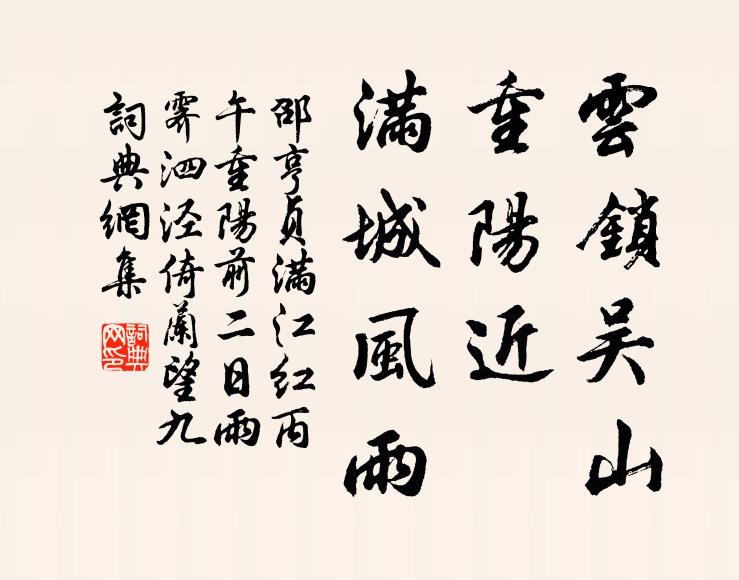 雲鎖吴山
重陽近
滿城風雨
邵亨貞滿江紅丙
午重陽前二日雨
霽泗涇倚蘭望九
詞典網集
詞典
网印